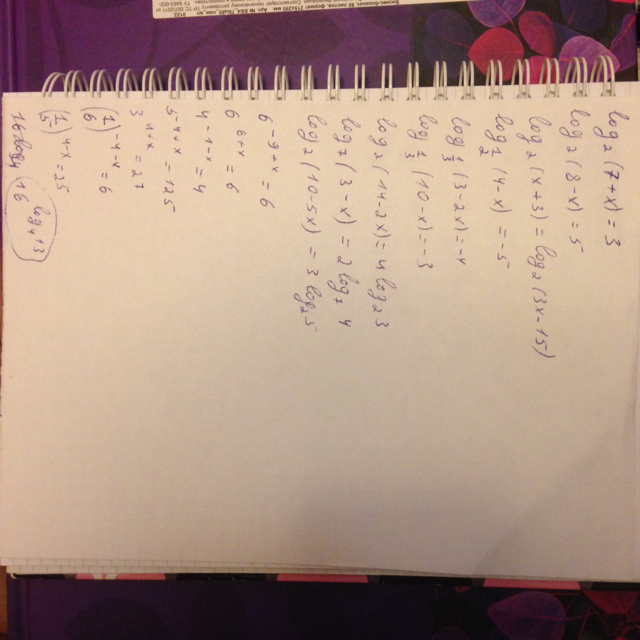 log₂(7+x)=3
log₂(8-x)=5
log₂(x+3)=log₂(3x-15)
log½(4-x)=-5
log⅓(3-2x)=-4
log⅓(10-x)=-3
log₂(14-2x)=4log₂3
log₂(3-x)=2log₂4
log₂(10-5x)=3log₂5
6^(-9+x)=6
6^(6+x)=6
4^(-1-x)=4
5^(4+x)=125
=27
=6
=25